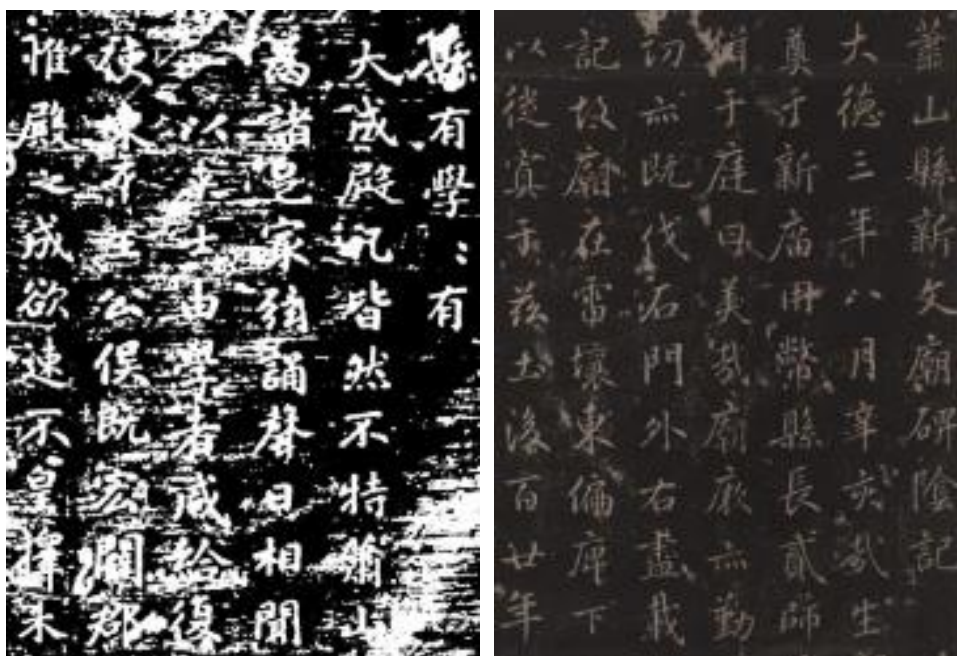 縣有學︰有
大成殿汎皆然不特蕭山
諸邑家誦聲日相聞
以來士由學者咸給復
使來本公侯既宏闢郡
惟殿之成欲速不皇擇木
蕭山縣新文廟碑陰記
大德三年八月辛亥哉生
奠于新庿用幣縣長貳師
于庭曰美哉廟厥亦勤
亦既伐石門外右盡
記故廟在雷壤東偏庳下
以從賓于茲土後百廿年